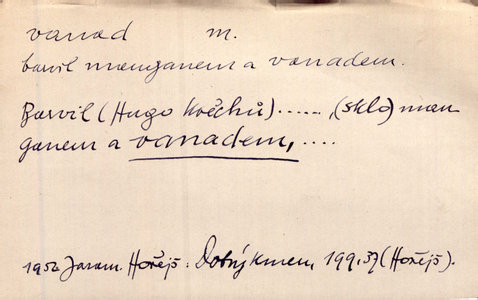 vanad m.
barvil manganem a vanadem.
Barvil (Hugo Kvěchů) ......, (sklo) man
ganem a vanadem, ....
1956 Jarom. Hořejš: Dobrý kmen, 199,37 (Hořejš).